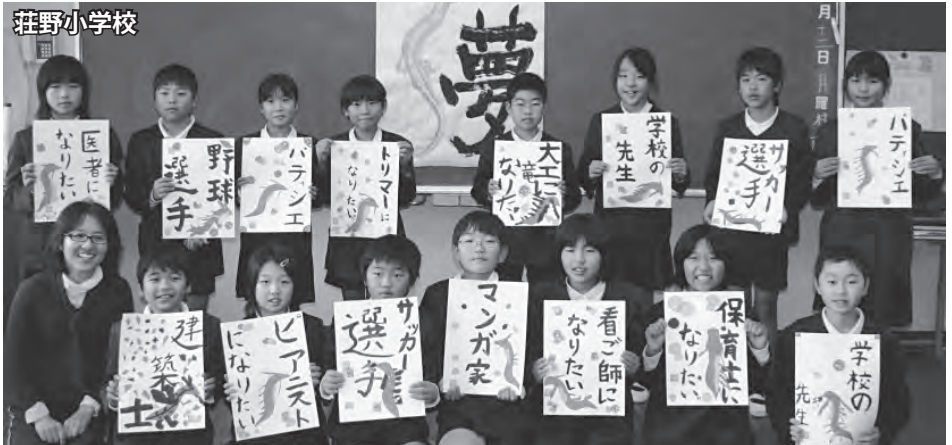 荘野小学校
夢
月十二日月曜
医者に
なりたい
野球
選手
パティシエ
トリマーに
なりたい
大工に
なりたい
学校の
先生
サッカー
選手
パティシエ
建築士
ピアニスト
になりたい
サッカー
選手
マンガ家
看ご師に
なりたい
保育士に
なりたい
学校の
先生